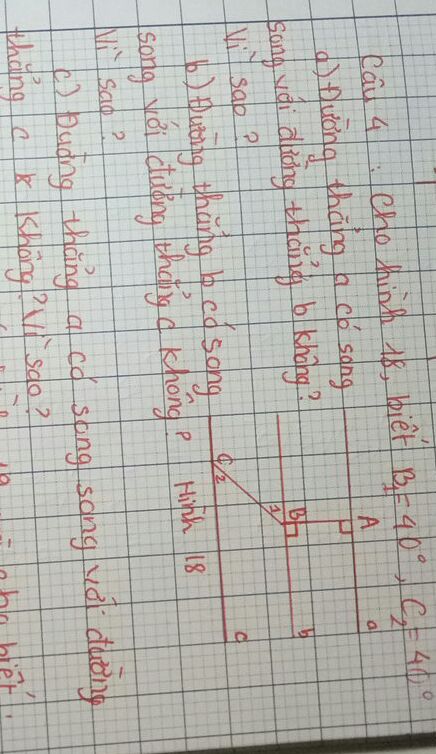 Câu 4 : Cho hình 18, biết B1 = 40°, C2 = 40°
a) Đường thẳng a có song
song với đường thẳng b không?
Vì sao ?
b) Đường thẳng b có song
song với đường thẳng c không?
Vì sao ?
c) Đường thẳng a có song song với đường
thẳng c k không? Vì sao?
A
a
B
1
b
C
2
c
Hình 18